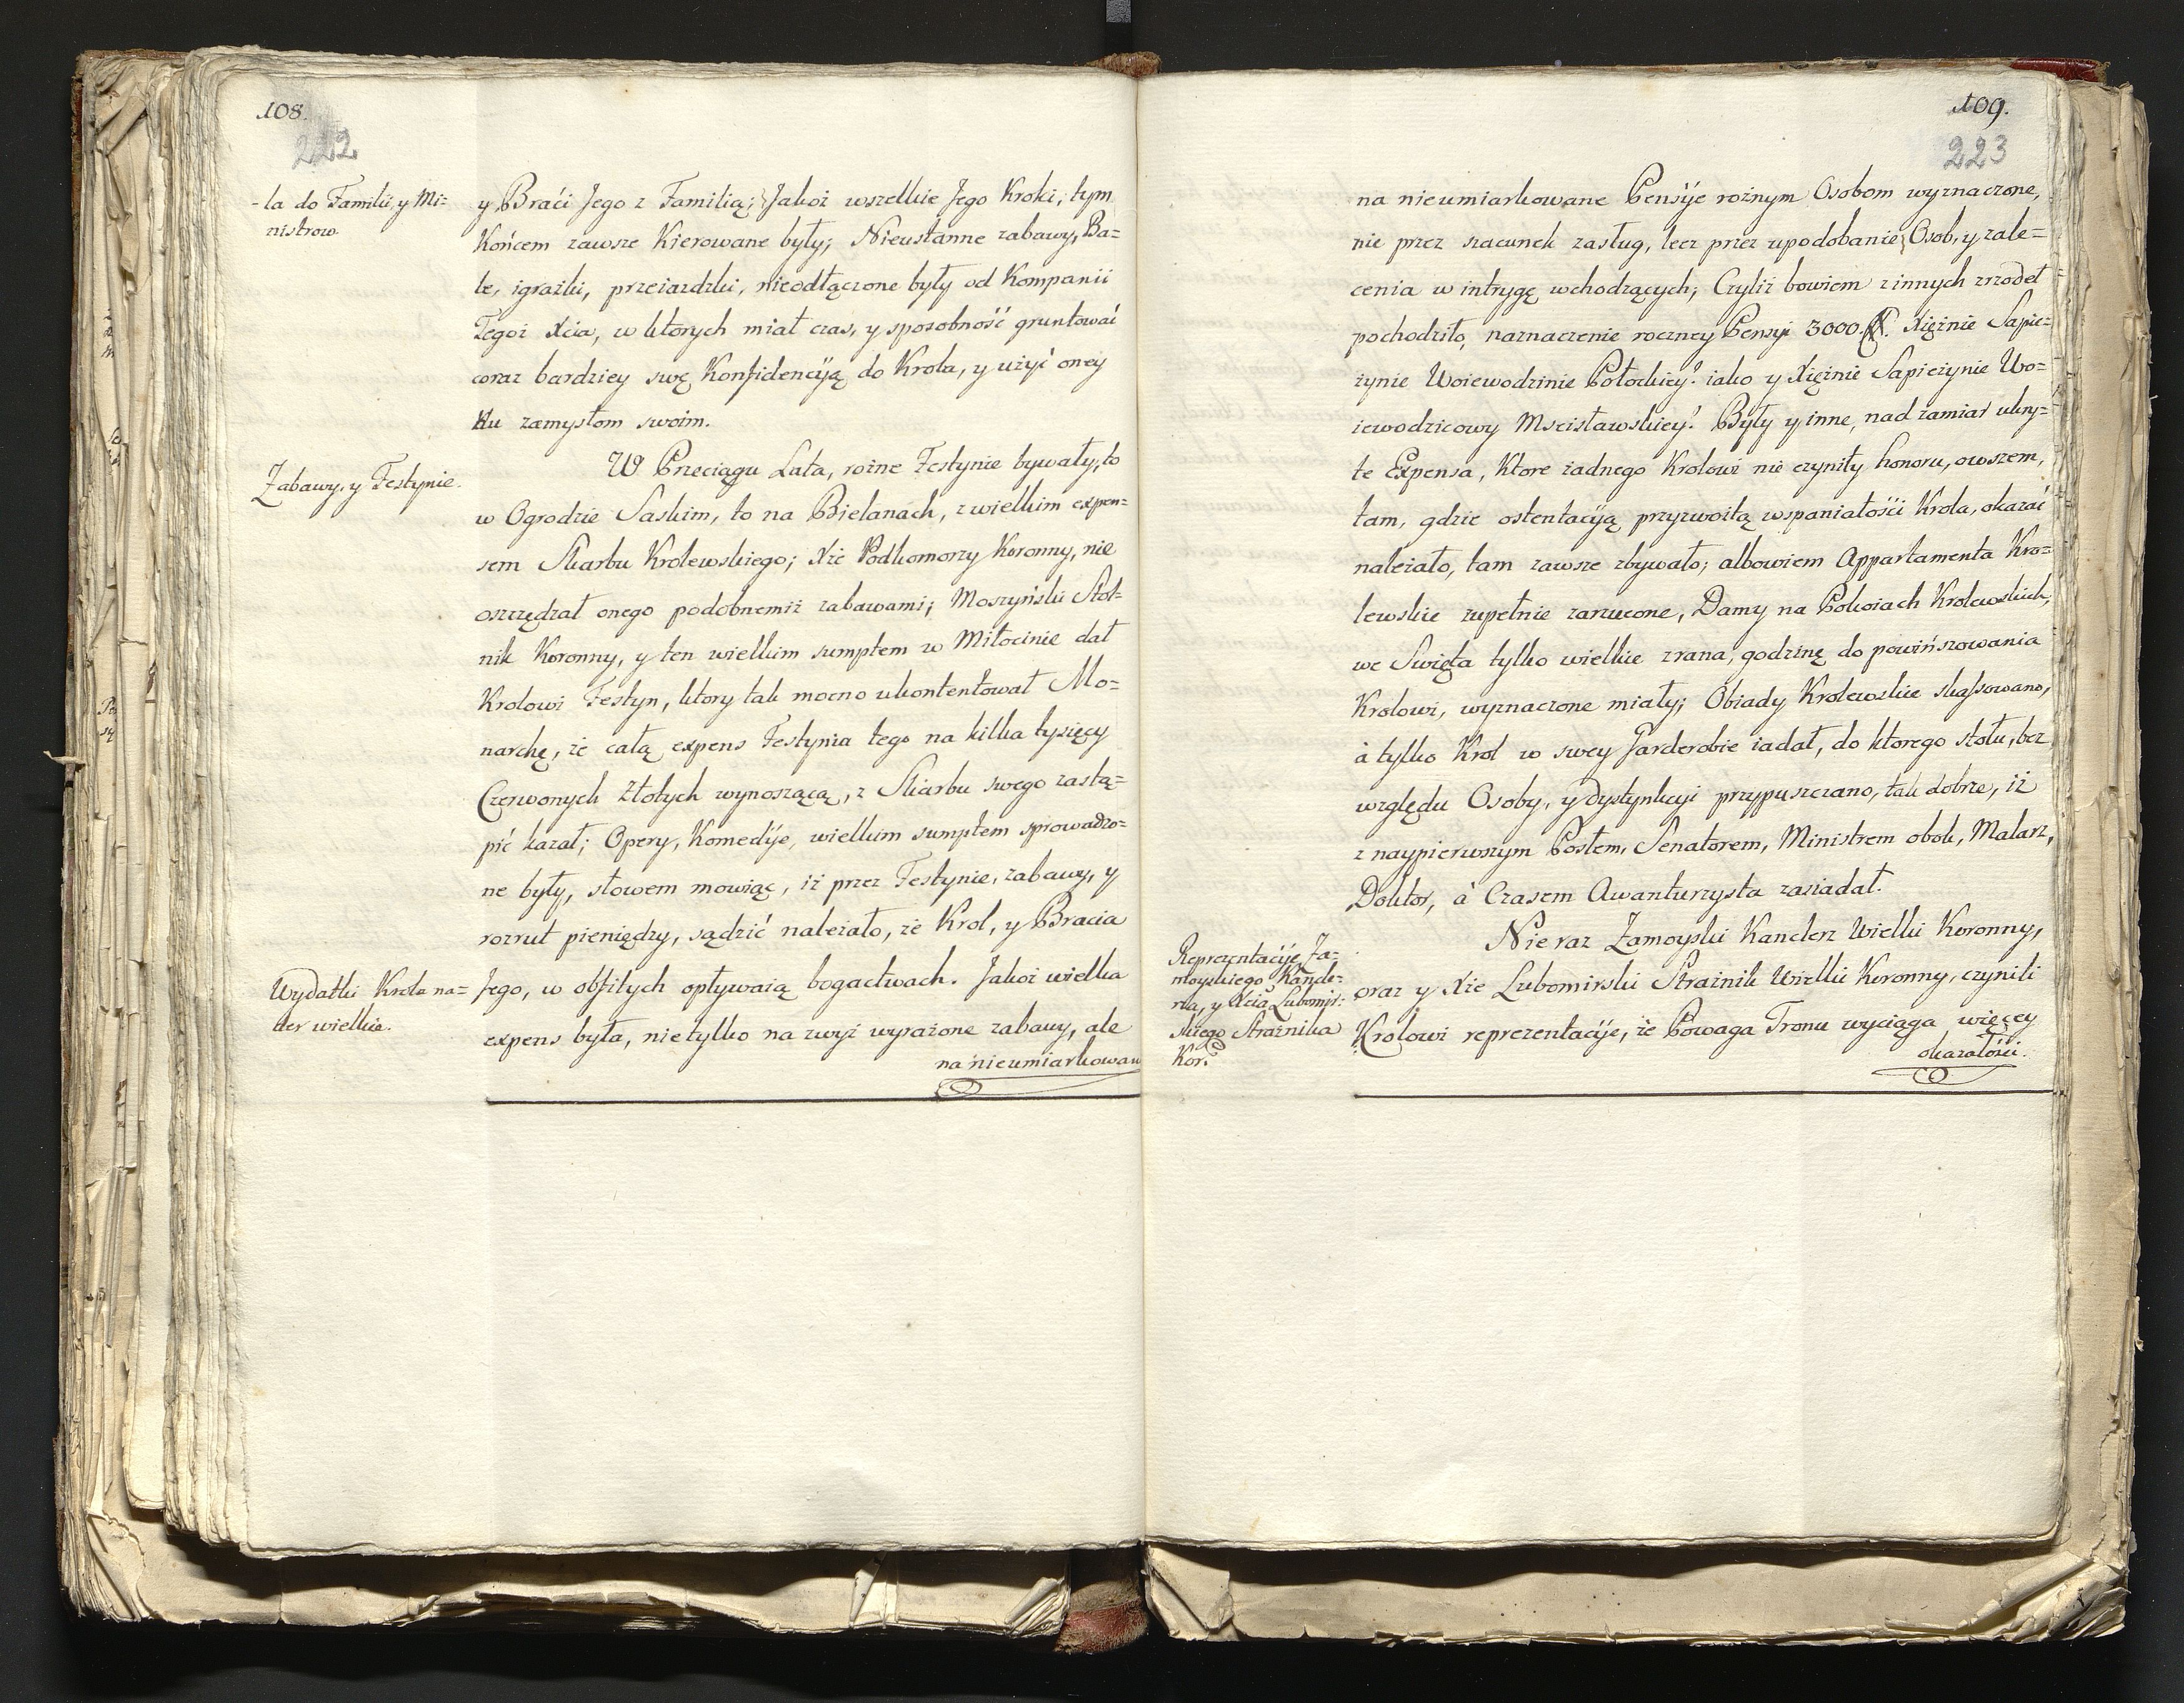 108.
222
-la do Familii, y Mi=
nistrow.
y Braći Jego z Familią; Jakoż wszelkie Jego Kroki, tym
Końcem zawsze Kierowane były; Nieustanne zabawy, Ba=
le, igrażki, przeiazdzki, nieodłączone były od Kompanii
Tegoż Xcia, w ktorych miał czas, y sposobność gruntować
coraz bardziey swę Konfidencyją do Krola, y użyć oney
Ku zamysłom swoim.
Zabawy, y Festynie.
W Przeciągu Lata, rożne Festynie bywały, to
w Ogrodzie Saskim, to na Bielanach, z wielkim expen=
sem Skarbu Krolewskiego; Xże Podkomorzy Koronny, nie
oszczędzał onego podobnemiż zabawami; Moszyński Stol=
nik Koronny, y ten wielkim sumptem w Miłocinie dał
Krolowi Festyn, ktory tak mocno ukontentował Mo=
narchę, że całą expens Festynia tego na kilka tysięcy
Czerwonych Złotych wynoszącą, z Skarbu swego zastą=
pić kazał; Opery, Komedyje, wielkim sumptem sprowadzo=
ne były, słowem mowiąc, iż przez Festynie, zabawy, y
rozrut pieniędzy, sądzić należało, że Krol, y Bracia
Wydatki Krola na=
der wielkie.
Jego, w obfitych opływaią bogactwach. Jakoż wielka
expens była, nietylko na zwyż wyrażone zabawy, ale
na nieumiarkowan
109.
223
na nieumiarkowane Pensyje rożnym Osobom wyznaczone,
nie przez szacunek zasług, lecz przez upodobanie Osob, y zale=
cenia w intrygę wchodzących; Czyliż bowiem z innych zrzodeł
pochodziło, naznaczenie roczney Pensyi 3000. Xiężnie Sapie=
żynie Woiewodzinie Połockiey? iako y Xiężnie Sapieżynie Wo=
iewodzicowy Mscisławskiey? Były y inne, nad zamiar ukry=
te Expensa, Ktore żadnego Krolowi nie czyniły honoru, owszem,
tam, gdzie ostentacyją przyzwoitą wspaniałości Krola, okazać
należało, tam zawsze zbywało; albowiem Appartamenta Kro=
lewskie zupełnie zarzucone, Damy na Pokoiach Krolewskich,
we Swięta tylko wielkie zrana, godzinę do powińszowania
Krolowi, wyznaczone miały; Obiady Krolewskie skassowano,
à tylko Krol w swey Garderobie iadał, do ktorego stołu, bez
względu Osoby, y dystynkcyi przypuszczano, tak dobrze, iż
z naypierwszym Posłem, Senatorem, Ministrem obok, Malarz,
Doktor, à Czasem Awanturzysta zasiadał.
Reprezentacyje Za=
moyskiego Kancle=
rza, y Xcia Lubomir=
skiego Strażnika
Kor:
Nie raz Zamoyski Kanclerz Wielki Koronny,
oraz y Xże Lubomirski Strażnik Wielki Koronny, czynili
Krolowi reprezentacyje, że Powaga Tronu wyciąga więcey
okazałości.